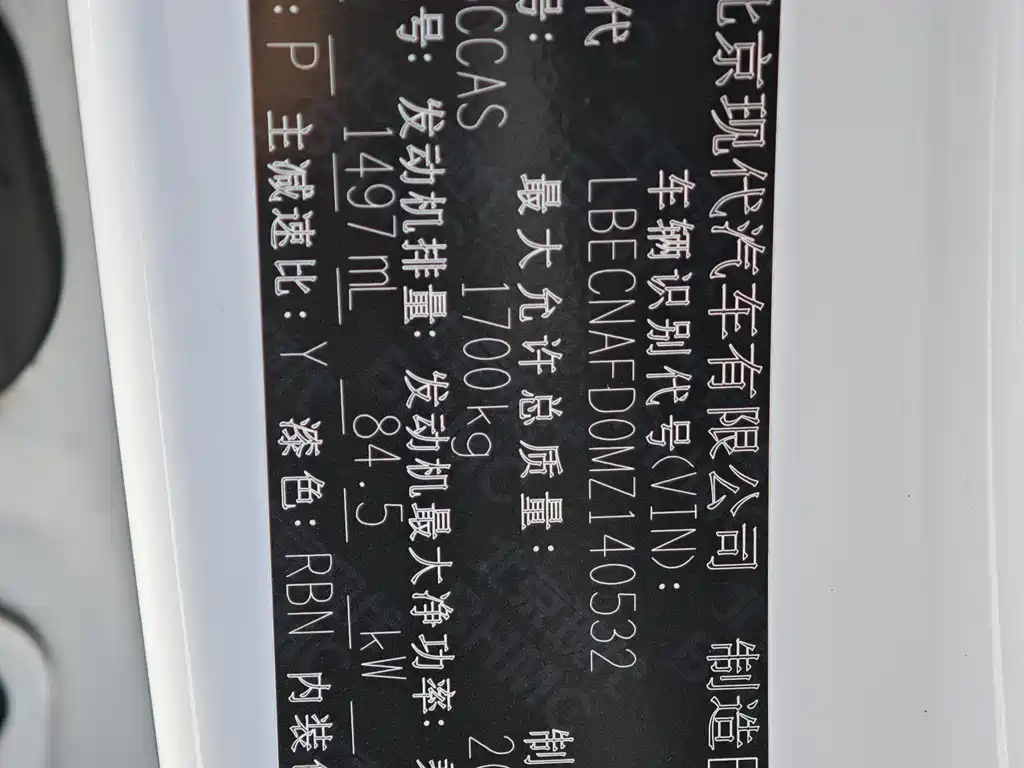 北京现代汽车有限公司 制造
车辆识别代号(VIN):
代 LBECNAFD0MZ140532
号: 最大允许总质量: 制
CCAS 1700kg 2
号: 发动机排量: 发动机最大净功率:
1497mL 84.5 kW
: P 主减速比: Y 漆色: RBN 内装